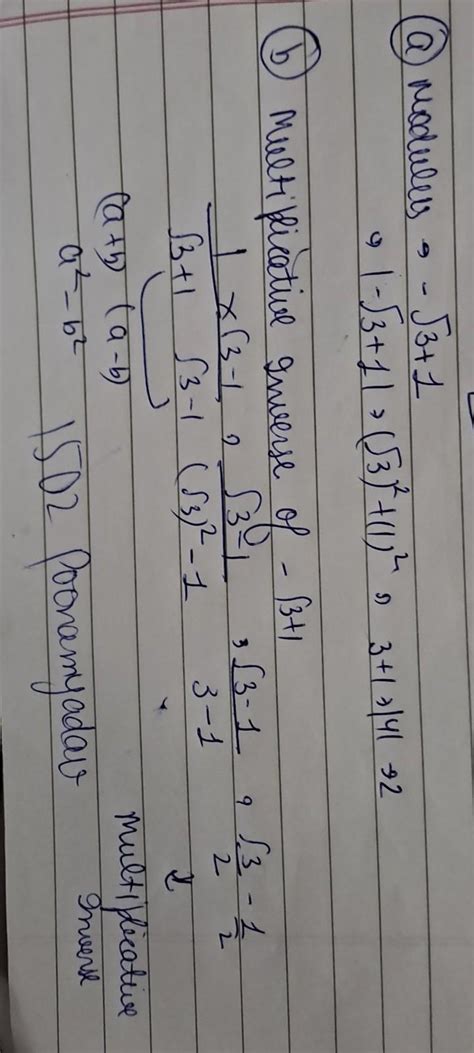 (a) Modulus → -√3+1
→ |-√3+1| → (√3)² + (1)² → 3+1 → |4| → 2
(b) Multiplicative Inverse of -√3+1
1/(√3+1) × (√3-1)/(√3-1) , (√3-1)/((√3)²-1) , (√3-1)/(3-1) , √3/2 - 1/2
(a+b) (a-b)
a²-b²
Multiplicative
Inverse
1502 Poonamyadav